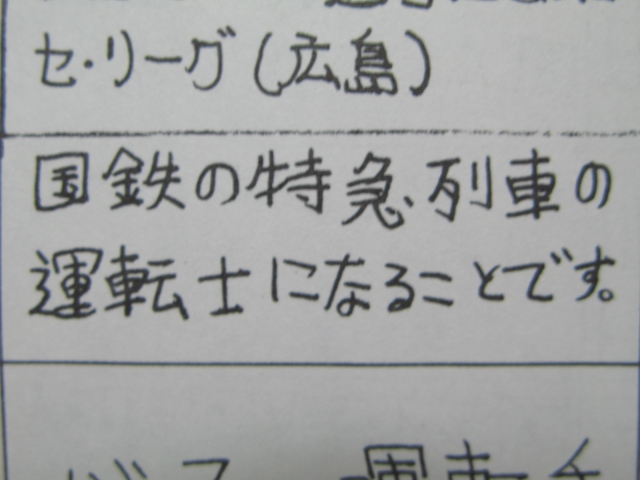 セ・リーグ(広島)
国鉄の特急列車の
運転士になることです。